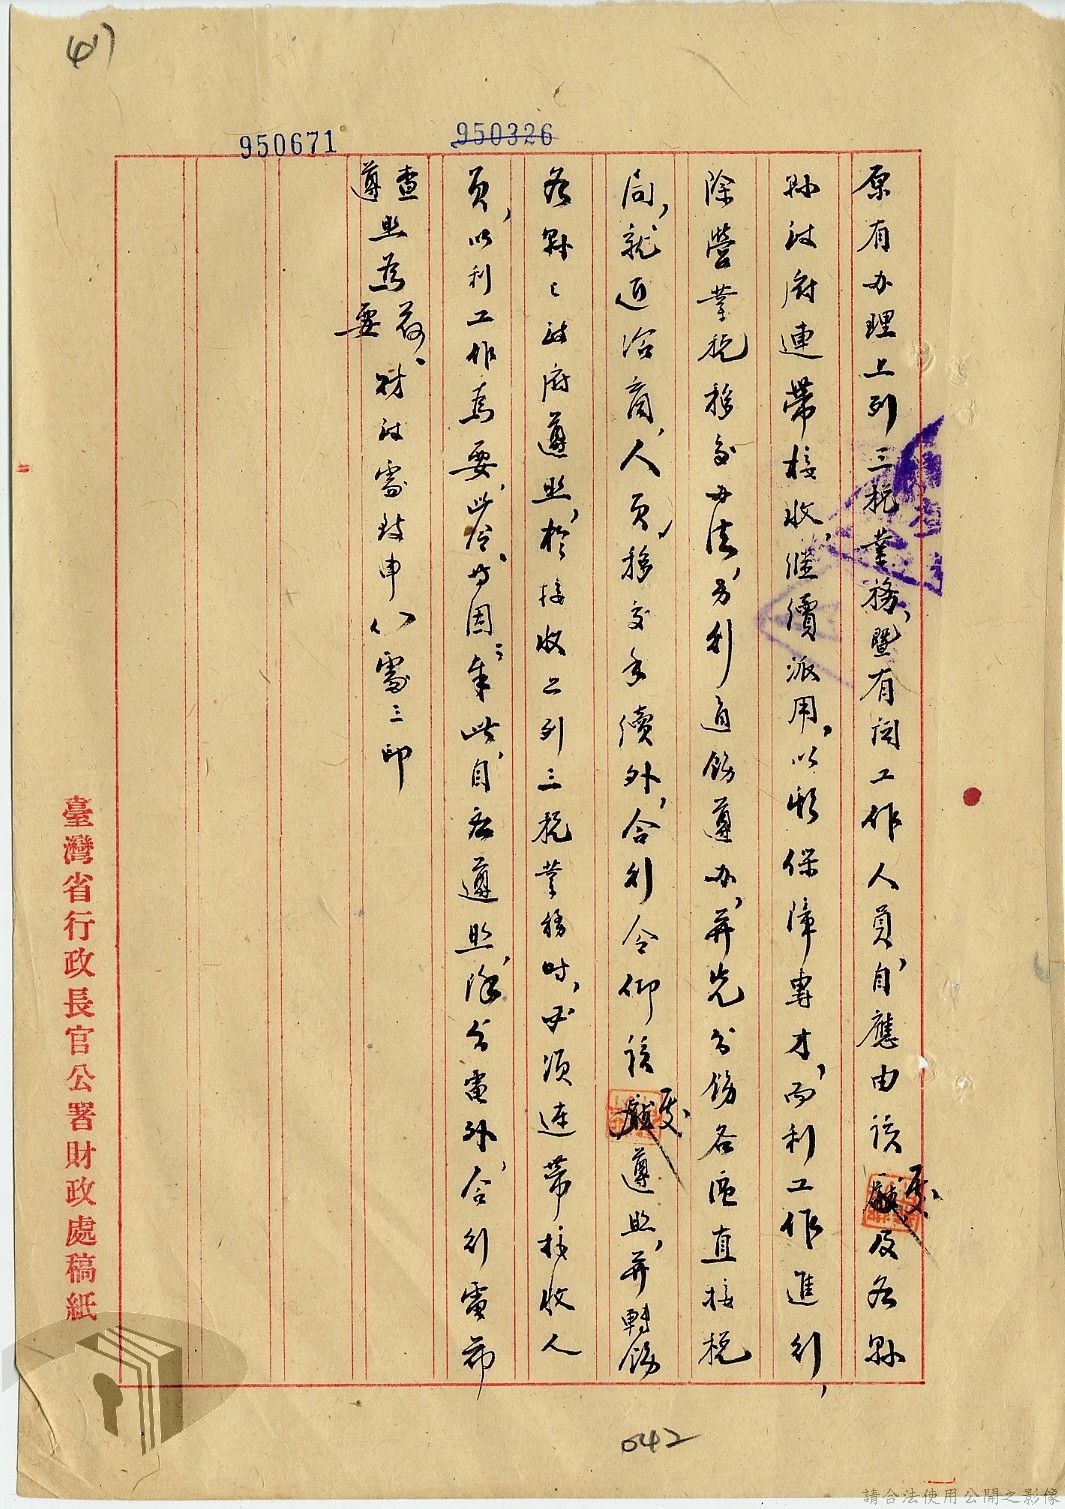 (4)
950671
950326
原有办理上列三稅業務，暨有関工作人員，自應由該處及各縣
縣政府連帶接收，繼續派用，以資保障專才，而利工作進行，
除營業稅移交办法，另行通飭遵办，并先分飭各區直接稅
局，就近洽商，人員，移交手續外，合行令仰該處遵照，并轉飭
各縣政府遵照，於接收上列三稅業務時，必須連帶接收人
員，以利工作為要，此令。等因；奉此，自應遵照，除分電外，合行電希
查照為荷、財政處致申（）處三印
遵照為要
臺灣省行政長官公署財政處稿紙
042
請合法使用公開之影像